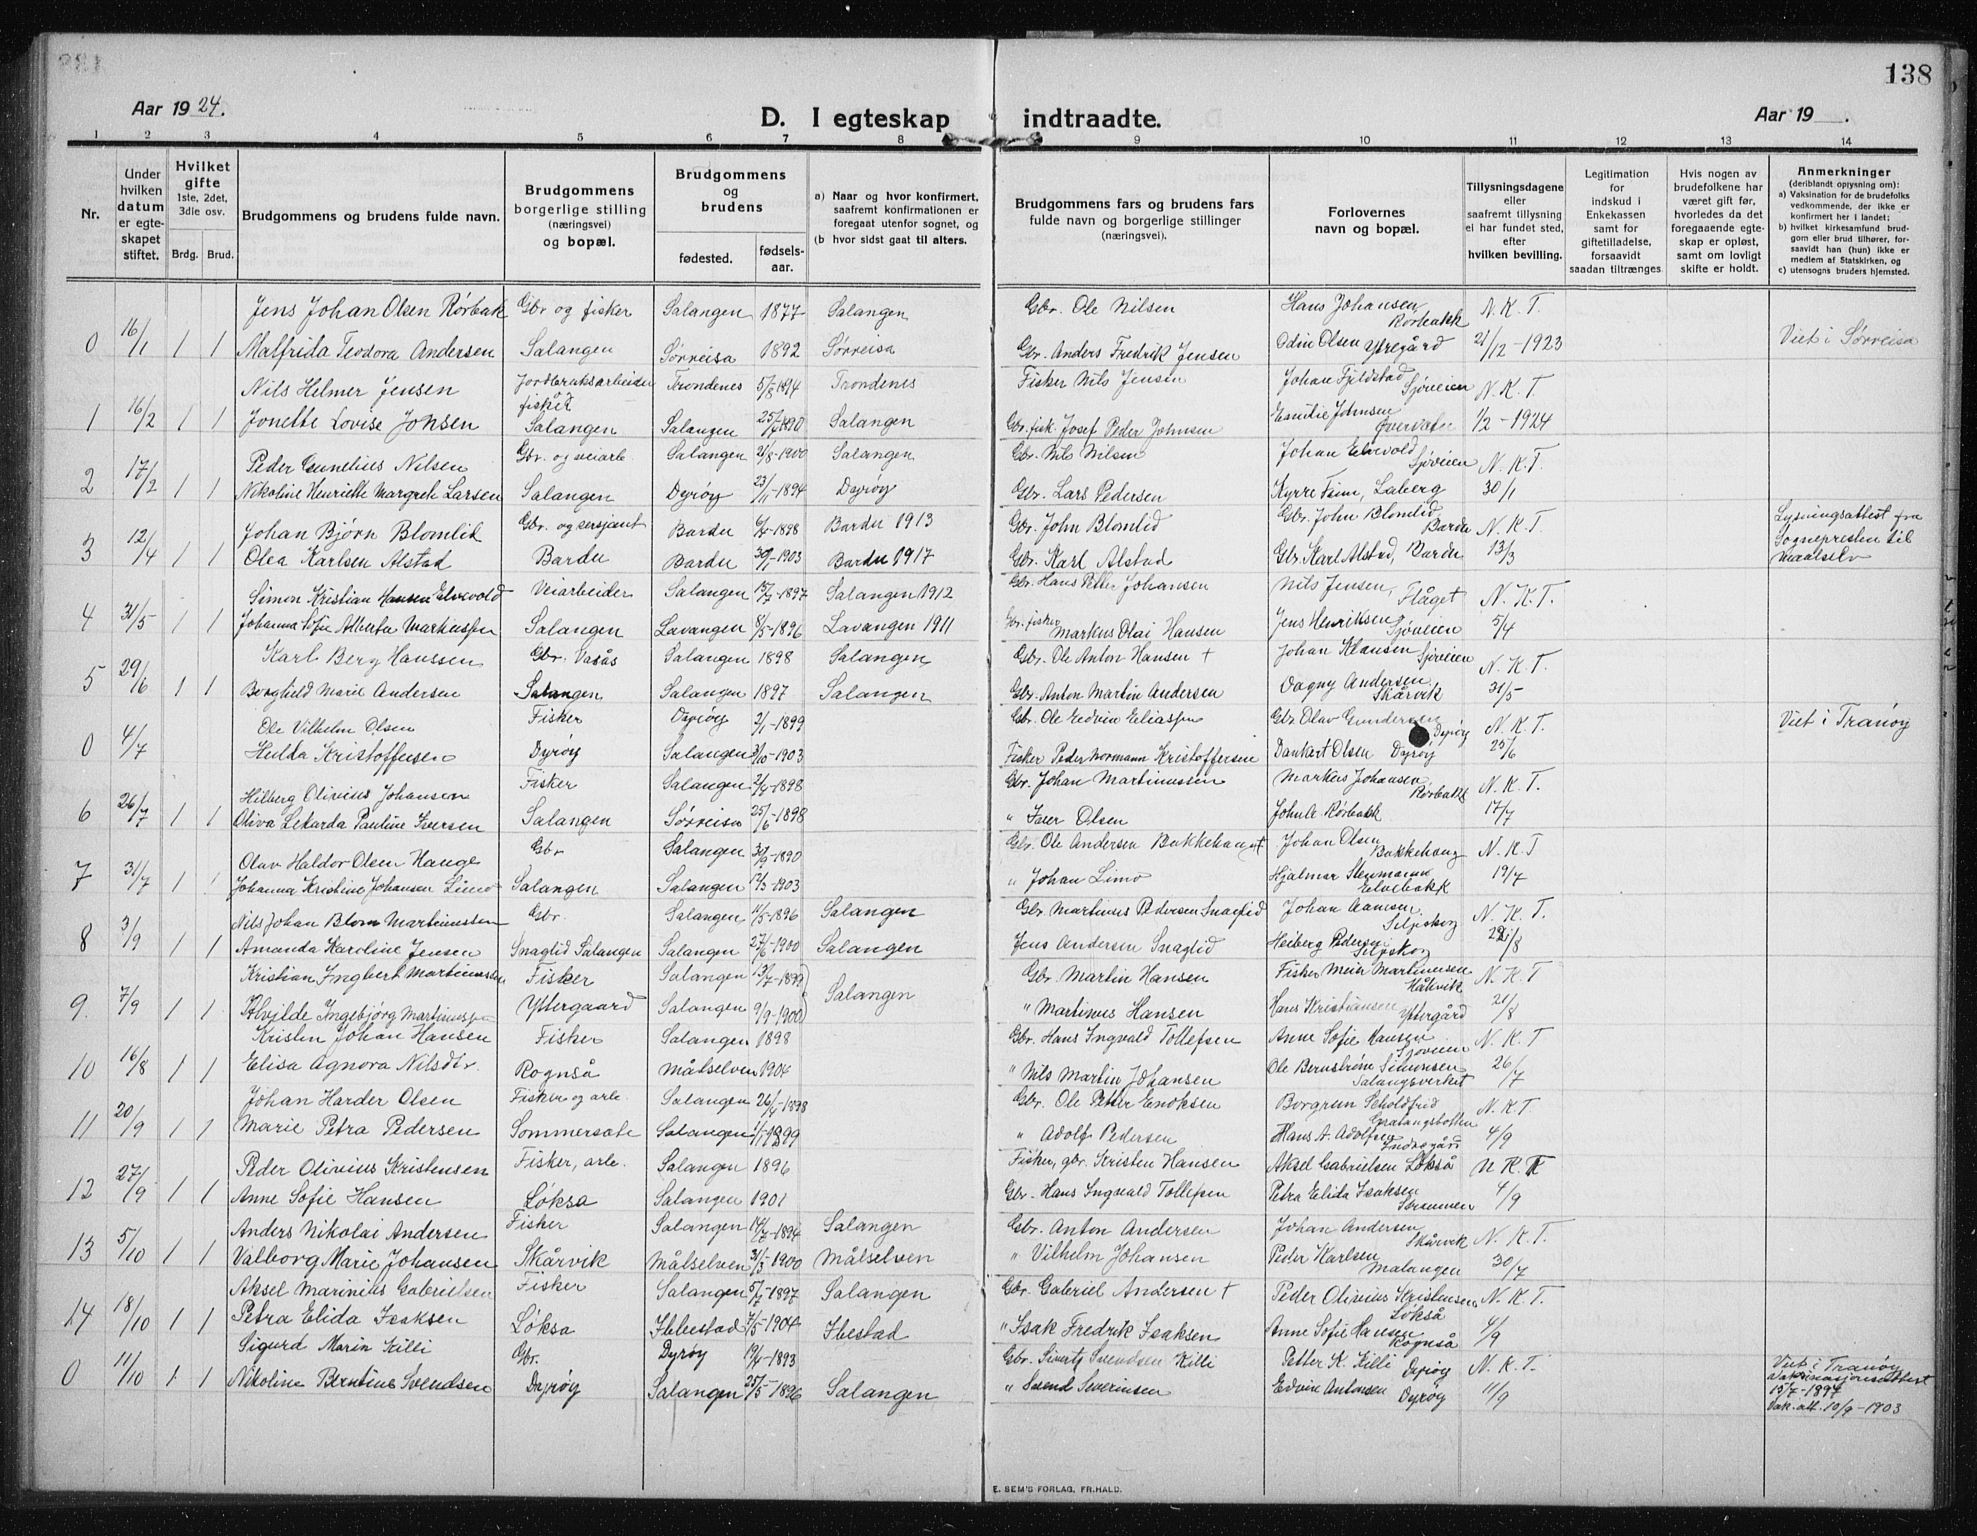 138
Aar 1924.
D. I egteskap indtraadte.
Aar 19 .
1 2 3 4 5 6 7 8 9 10 11 12 13 14
Nr.
Under hvilken datum er egteskapet stiftet.
Hvilket gifte 1ste, 2det, 3die osv.
Brdg. Brud.
Brudgommens og brudens fulde navn.
Brudgommens borgerlige stilling (næringsvei) og bopæl.
Brudgommens og brudens
fødested. fødselsaar.
a) Naar og hvor konfirmert, saafremt konfirmationen er foregaat utenfor sognet, og
(b hvor sidst gaat til alters.
Brudgommens fars og brudens fars fulde navn og borgerlige stillinger (næringsvei).
Forlovernes navn og bopæl.
Tillysningsdagene eller saafremt tillysning ei har fundet sted, efter hvilken bevilling.
Legitimation for indskud i Enkekassen samt for giftetilladelse, forsaavidt saadan tiltrænges.
Hvis nogen av brudefolkene har været gift før, hvorledes da det foregaaende egteskap er opløst, samt om lovligt skifte er holdt.
Anmerkninger (deriblandt oplysning om):
a) Vaksination for de brudefolks vedkommende, der ikke er konfirmert her i landet;
b) hvilket kirkesamfund brudgom eller brud tilhører, forsaavidt han (hun) ikke er medlem af Statskirken, og
c) utensogns bruders hjemsted.
Jens Johan Olsen Rørbak Gbr og fisker Salangen 1877 Salangen Gbr. Ole Nilsen Hans Johansen Rørbakk N. K. T.
0 16/1 1 1 Malfrida Teodora Andersen Salangen Sørreisa 1892 Sørreisa Gbr. Anders Fredrik Jensen Odin Olsen Ytregård 21/12-1923 Viet i Sørreisa
Nils Helmer Jensen Jordbruksarbeider fisker Trondenes 5/8 1894 Trondenes Fisker Nils Jensen Johan Fjeldstad Sjøveien N. K. T.
1 16/2 1 1 Jonette Lovise Johsen Salangen Salangen 1890 Salangen Gbr. fisk. Josef Peder Johnsen Emilie Johnsen 1/2-1924
Peder Cornelius Nilsen Gbr. og veiarb. Salangen 21/8-1900 Salangen Gbr. Nils Nilsen Johan Elvevold Sjøveien N. K. T.
2 17/2 1 1 Nikoline Henriette Margrete Larsen Salangen Dyrøy 23/11-1894 Dyrøy Gbr. Lars Pedersen Kyrre Laberg 30/1
Johan Bjørn Blomlid Gbr. og sersjant Bardu 1898 Bardu 1913 Gbr. John Blomlid Gbr. John Blomlid Bardu N. K. T. Lysningsattest fra Sognepresten til Maalselv
3 12/4 1 1 Olea Karlsen Alstad Bardu Bardu 1903 Bardu 1917 Gbr. Karl Alstad Gbr. Karl Alstad, Bardu 13/3
Simon Kristian Hansen Elvevold Veiarbeider Salangen 15/7-1897 Salangen 1912 Gbr. Hans Peter Johansen Nils Jensen, Flåget N. K. T.
4 31/5 1 1 Johanna Sofie Alberta Markussen Salangen Lavangen 8/5-1896 Lavangen 1911 Gbr. fisker Markus Olai Hansen Jens Henriksen Sjøveien 5/4
Karl Berg Hanssen Gbr. Vasås Salangen 1898 Salangen Gbr. Ole Anton Hansen + Johan Klausen Sjøveien N. K. T.
5 29/6 1 1 Borghild Marie Andersen Salangen Salangen 1897 Salangen Gbr. Anton Martin Andersen Dagny Andersen Skårvik 31/5
Ole Vilhelm Olsen Fisker Dyrøy 2/1-1899 Gbr. Ole Edvin Eliassen Gbr. Olav Gundersen Dyrøy N. K. T. Viet i Tranøy
0 4/7 Hulda Kristoffersen Dyrøy Salangen 1903 Fisker Peder Normann Kristoffersen Dankert Olsen Dyrøy 25/6
Hilberg Olivius Johansen Fisker Salangen 1898 Gbr. Johan Martinussen Markus Johansen, Rørbakk N. K. T.
6 26/7 1 1 Oliva Lekarda Pauline Iversen Salangen Sørreisa 25/6-1898 " Iver Olsen Rørbakk 17/7
Olav Haldor Olsen Hauge Gbr Salangen 30/9-1890 Gbr. Ole Andersen Bakkehaug + Johan Olsen Bakkehaug N. K. T
7 31/7 1 1 Johanna Kristine Johansen Limo Salangen Salangen 1903 " Johan Limo Hjalmar Stenmann Elvebakk 19/7
Nils Johan Blom Martinussen Gbr. Salangen 11/5-1896 Salangen Gbr. Martinus Pedersen Snaglid Johan Hansen Selpskog N. K. T.
8 3/9 1 1 Amanda Karoline Jensen Snaglid Salangen Salangen 27/6-1900 Salangen Jens Andersen Snaglid Heiberg Pedersen Selpskog /8
Kristian Ingbert Martinussen Fisker Salangen 13/7-1899 Salangen Gbr Martin Hansen Fisker Meier Martinusen Håkvik N. K. T
9. 7/9 1 1 Alvilde Ingebjørg Martinussen Yttergaard Salangen 9/9-1900 " Martinus Hansen Hans Kristiansen Yttergård 21/8
Kristen Johan Hansen Fisker Salangen 1898 Gbr. Hans Ingvald Tollefsen Anne Sofie Hansen Sjøveien N. K. T
10 16/8 1 1 Elisa Agnora Nilsdtr. Rognså Målselven 1904 " Nils Martin Johansen Ole Bernström Simonsen Salangsverket 26/7
Johan Harder Olsen Fisker og arb. Salangen 26/4-1898 Gbr. Ole Petter Enoksen Borgrun Scholdfrid Gratangsbotten N. K. T.
11 20/9 1 1 Marie Petra Pedersen Sommersæte Salangen 1899 " Adolf Pedersen Hans A. Adolfsen Indregård 4/9
Peder Olivius Kristensen Fisker, arb. Salangen 1896 Fisker, gbr. Kristen Hansen Aksel Gabrielsen Løkså N. K. T
12 27/9 1 1 Anne Sofie Hansen Løksa Salangen 1901 Gbr. Hans Ingvald Tollefsen Petra Elida Isaksen 4/9
Anders Nikolai Andersen Fisker Salangen 1894 Salangen Gbr. Anton Andersen Johan Andersen Skårvik N. K. T.
13 5/10 1 1 Valborg Marie Johansen Skårvik Målselven 31/3-1900 Målselven " Vilhelm Johansen Peder Karlsen Malangen 30/7
Aksel Marinius Gabrielsen Fisker Salangen 5/7-1897 Salangen Gbr. Gabriel Andersen + Peder Olivius Kristensen Løkså N. K. T.
14 18/10 1 1 Petra Elida Isaksen Løksa Ibbestad 7/5-1904 Ibestad " Isak Fredrik Isaksen Anne Sofie Hansen Rognså 4/9
Sigurd Marin Killi Gbr. Dyrøy 1893 Gbr. Sivert Svendsen Killi Petter K. Killi Dyrøy N. K. T. Viet i Tranøy Vaksinasjonsattest 15/7-1897 Vak. att. 10/9-1903
0 11/10 1 1 Nikoline Berntine Svendsen Dyrøy Salangen 25/5-1896 Salangen " Svend Severinsen Edvin Antonsen Dyrøy 11/9
E. SEM'S FORLAG, FR.HALD.